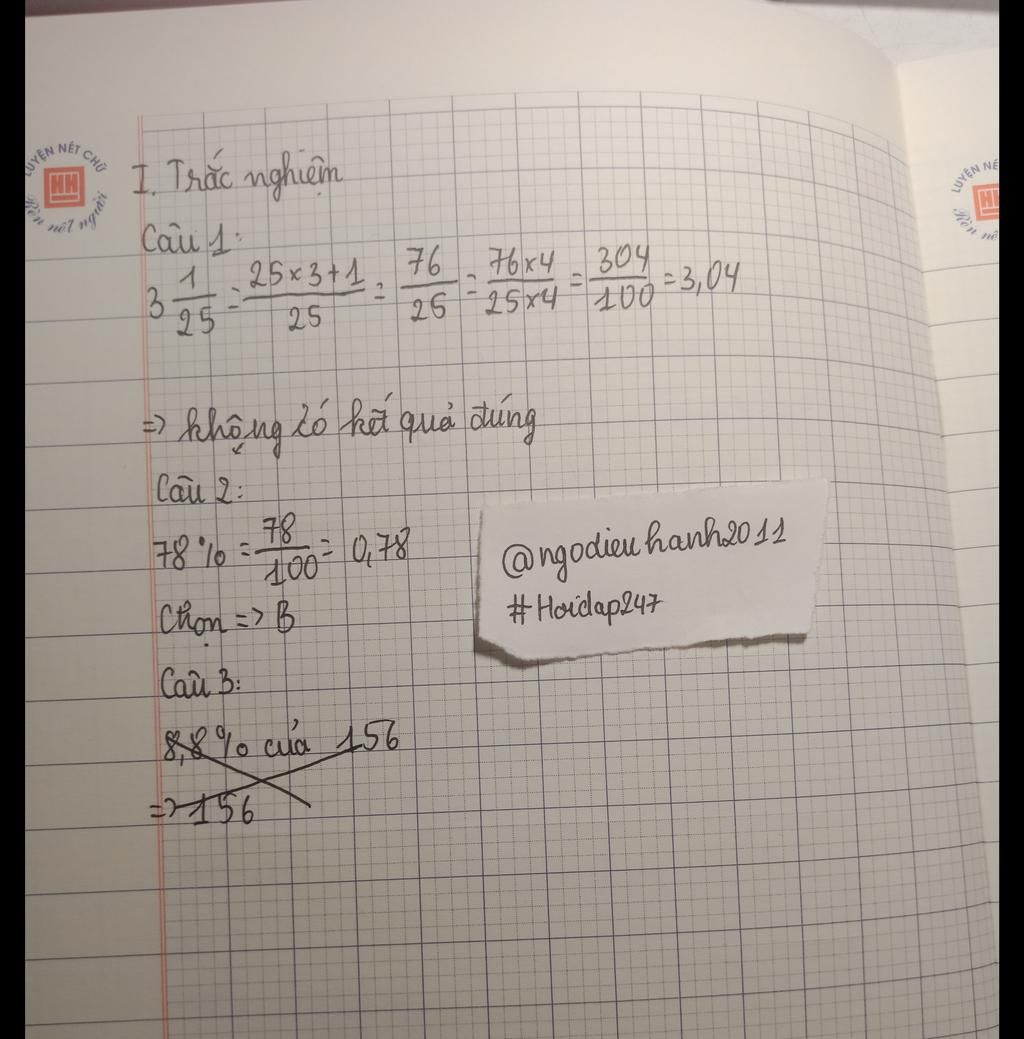 LUYỆN NÉT CHỮ
HH
Rèn nết người
I. Trắc nghiệm
Câu 1:
3 1/25 = 25 x 3 + 1/25 = 76/25 = 76 x 4/25 x 4 = 304/100 = 3,04
=> không có kết quả đúng
Câu 2:
78% = 78/100 = 0,78
Chọn => B
Câu 3:
8,8% của 156
=> 156
@ngodieuhanh2011
#Hoidap247
LUYỆN NÉ
H
Rèn nế